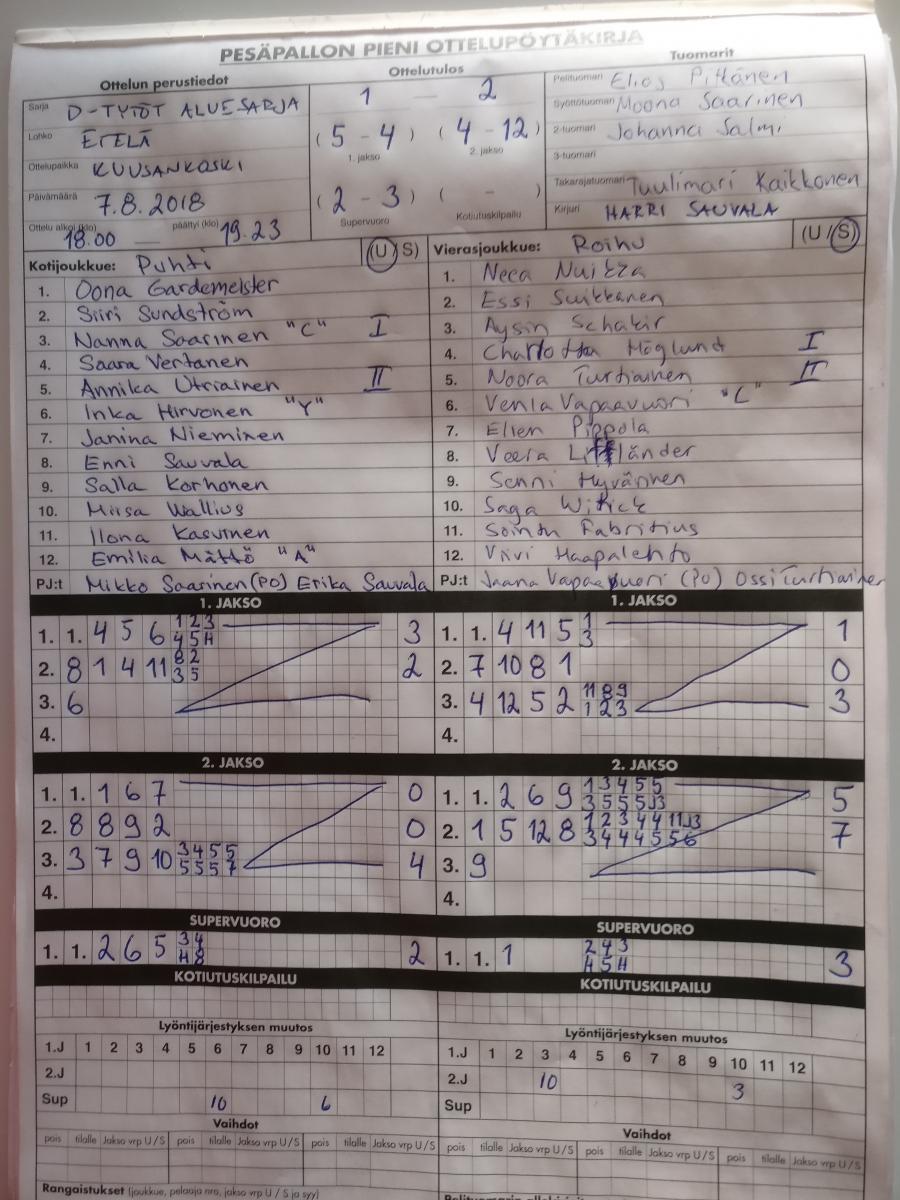 PESÄPALLON PIENI OTTELUPÖYTÄKIRJA
Ottelun perustiedot
Sarja D-TYTÖT ALUESARJA
Lohko ETELÄ
Ottelupaikka KUUSANKOSKI
Päivämäärä 7.8.2018
Ottelu alkoi (klo) 18.00 — päättyi (klo) 19.23
Ottelutulos
1 — 2
(5 - 4) (4 - 12)
1. jakso 2. jakso
(2 - 3) ( - )
Supervuoro Kotiutuskilpailu
Tuomarit
Pelituomari Elias Pitkänen
Syöttötuomari Moona Saarinen
2-tuomari Johanna Salmi
3-tuomari
Takarajatuomari Tuulimari Kaikkonen
Kirjuri HARRI SAUVALA
Kotijoukkue: Puhti (U/S)
1. Oona Gardemeister
2. Siiri Sundström
3. Nanna Saarinen "C" I
4. Saara Vertanen
5. Annika Utriainen II
6. Inka Hirvonen "Y"
7. Janina Nieminen
8. Enni Sauvala
9. Salla Korhonen
10. Miisa Wallius
11. Ilona Kasurinen
12. Emilia Mättö "A"
PJ:t Mikko Saarinen (PO) Erika Sauvala
Vierasjoukkue: Roihu (U/S)
1. Neea
2. Essi Suikkanen
3. Aysin Schakir
4. Charlotta Höglund I
5. Noora Turtiainen II
6. Venla Vapaavuori "C"
7. Ellen Pippola
8. Veera
9. Senni Hyvärinen
10. Saga
11. Sointu Fabritius
12. Viivi Haapalehto
PJ:t Jaana Vapaavuori (PO) Ossi Turtiainen
1. JAKSO
1. 1. 4 5 6 1 2 3 3
4 5 H
2. 8 1 4 11 8 2 2
3 5
3. 6
4.
1. JAKSO
1. 1. 4 11 5 1 1
3
2. 7 10 8 1 0
3. 4 12 5 2 11 8 9 3
1 2 3
4.
2. JAKSO
1. 1. 1 6 7 0
2. 8 8 9 2 0
3. 3 7 9 10 3 4 5 5 4
5 5 5 7
4.
2. JAKSO
1. 1. 2 6 9 1 3 4 5 5 5
3 5 5 5 J3
2. 1 5 12 8 1 2 3 4 4 11 J3 7
3 4 4 4 5 5 6
3. 9
4.
SUPERVUORO
1. 1. 2 6 5 3 4 2
H 8
SUPERVUORO
1. 1. 1 2 4 3 3
H 5 H
KOTIUTUSKILPAILU
KOTIUTUSKILPAILU
Lyöntijärjestyksen muutos
1.J 1 2 3 4 5 6 7 8 9 10 11 12
2.J
Sup 10 6
Lyöntijärjestyksen muutos
1.J 1 2 3 4 5 6 7 8 9 10 11 12
2.J 10 3
Sup
Vaihdot
pois tilalle Jakso vrp U/S pois tilalle Jakso vrp U/S pois tilalle Jakso vrp U/S
Vaihdot
pois tilalle Jakso vrp U/S pois tilalle Jakso vrp U/S pois tilalle Jakso vrp U/S
Rangaistukset (joukkue, pelaaja nro, jakso vrp U / S ja syy)